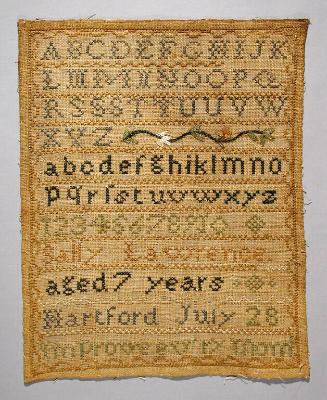 ABCDEFGHIJK
LMNOPQ
RSSTTUUVW
XYZ
abcdefghiklmno
pqrſstuvwxyz
12345678910
Sally Lawrence
aged 7 years
Hartford July 28
Improve